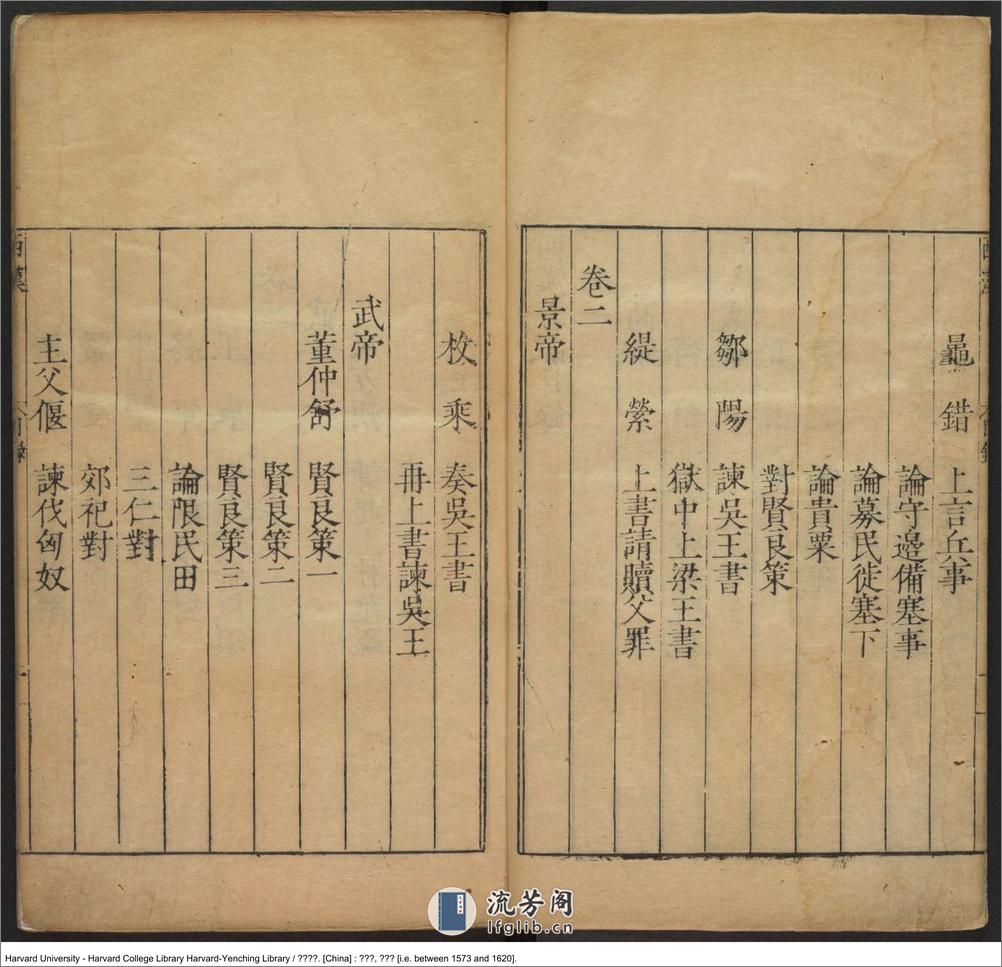 鼂錯 上言兵事
論守邊備塞事
論募民徙塞下
論貴粟
對賢良策
鄒陽 諫吳王書
獄中上梁王書
緹縈 上書請贖父罪
卷二
景帝
枚乘 奏吳王書
再上書諫吳王
武帝
董仲舒 賢良策一
賢良策二
賢良策三
論限民田
三仁對
郊祀對
主父偃 諫伐匈奴
西漢
流芳阁
lfglib.cn
Harvard University - Harvard College Library Harvard-Yenching Library / ????. [China] : ???, ??? [i.e. between 1573 and 1620].